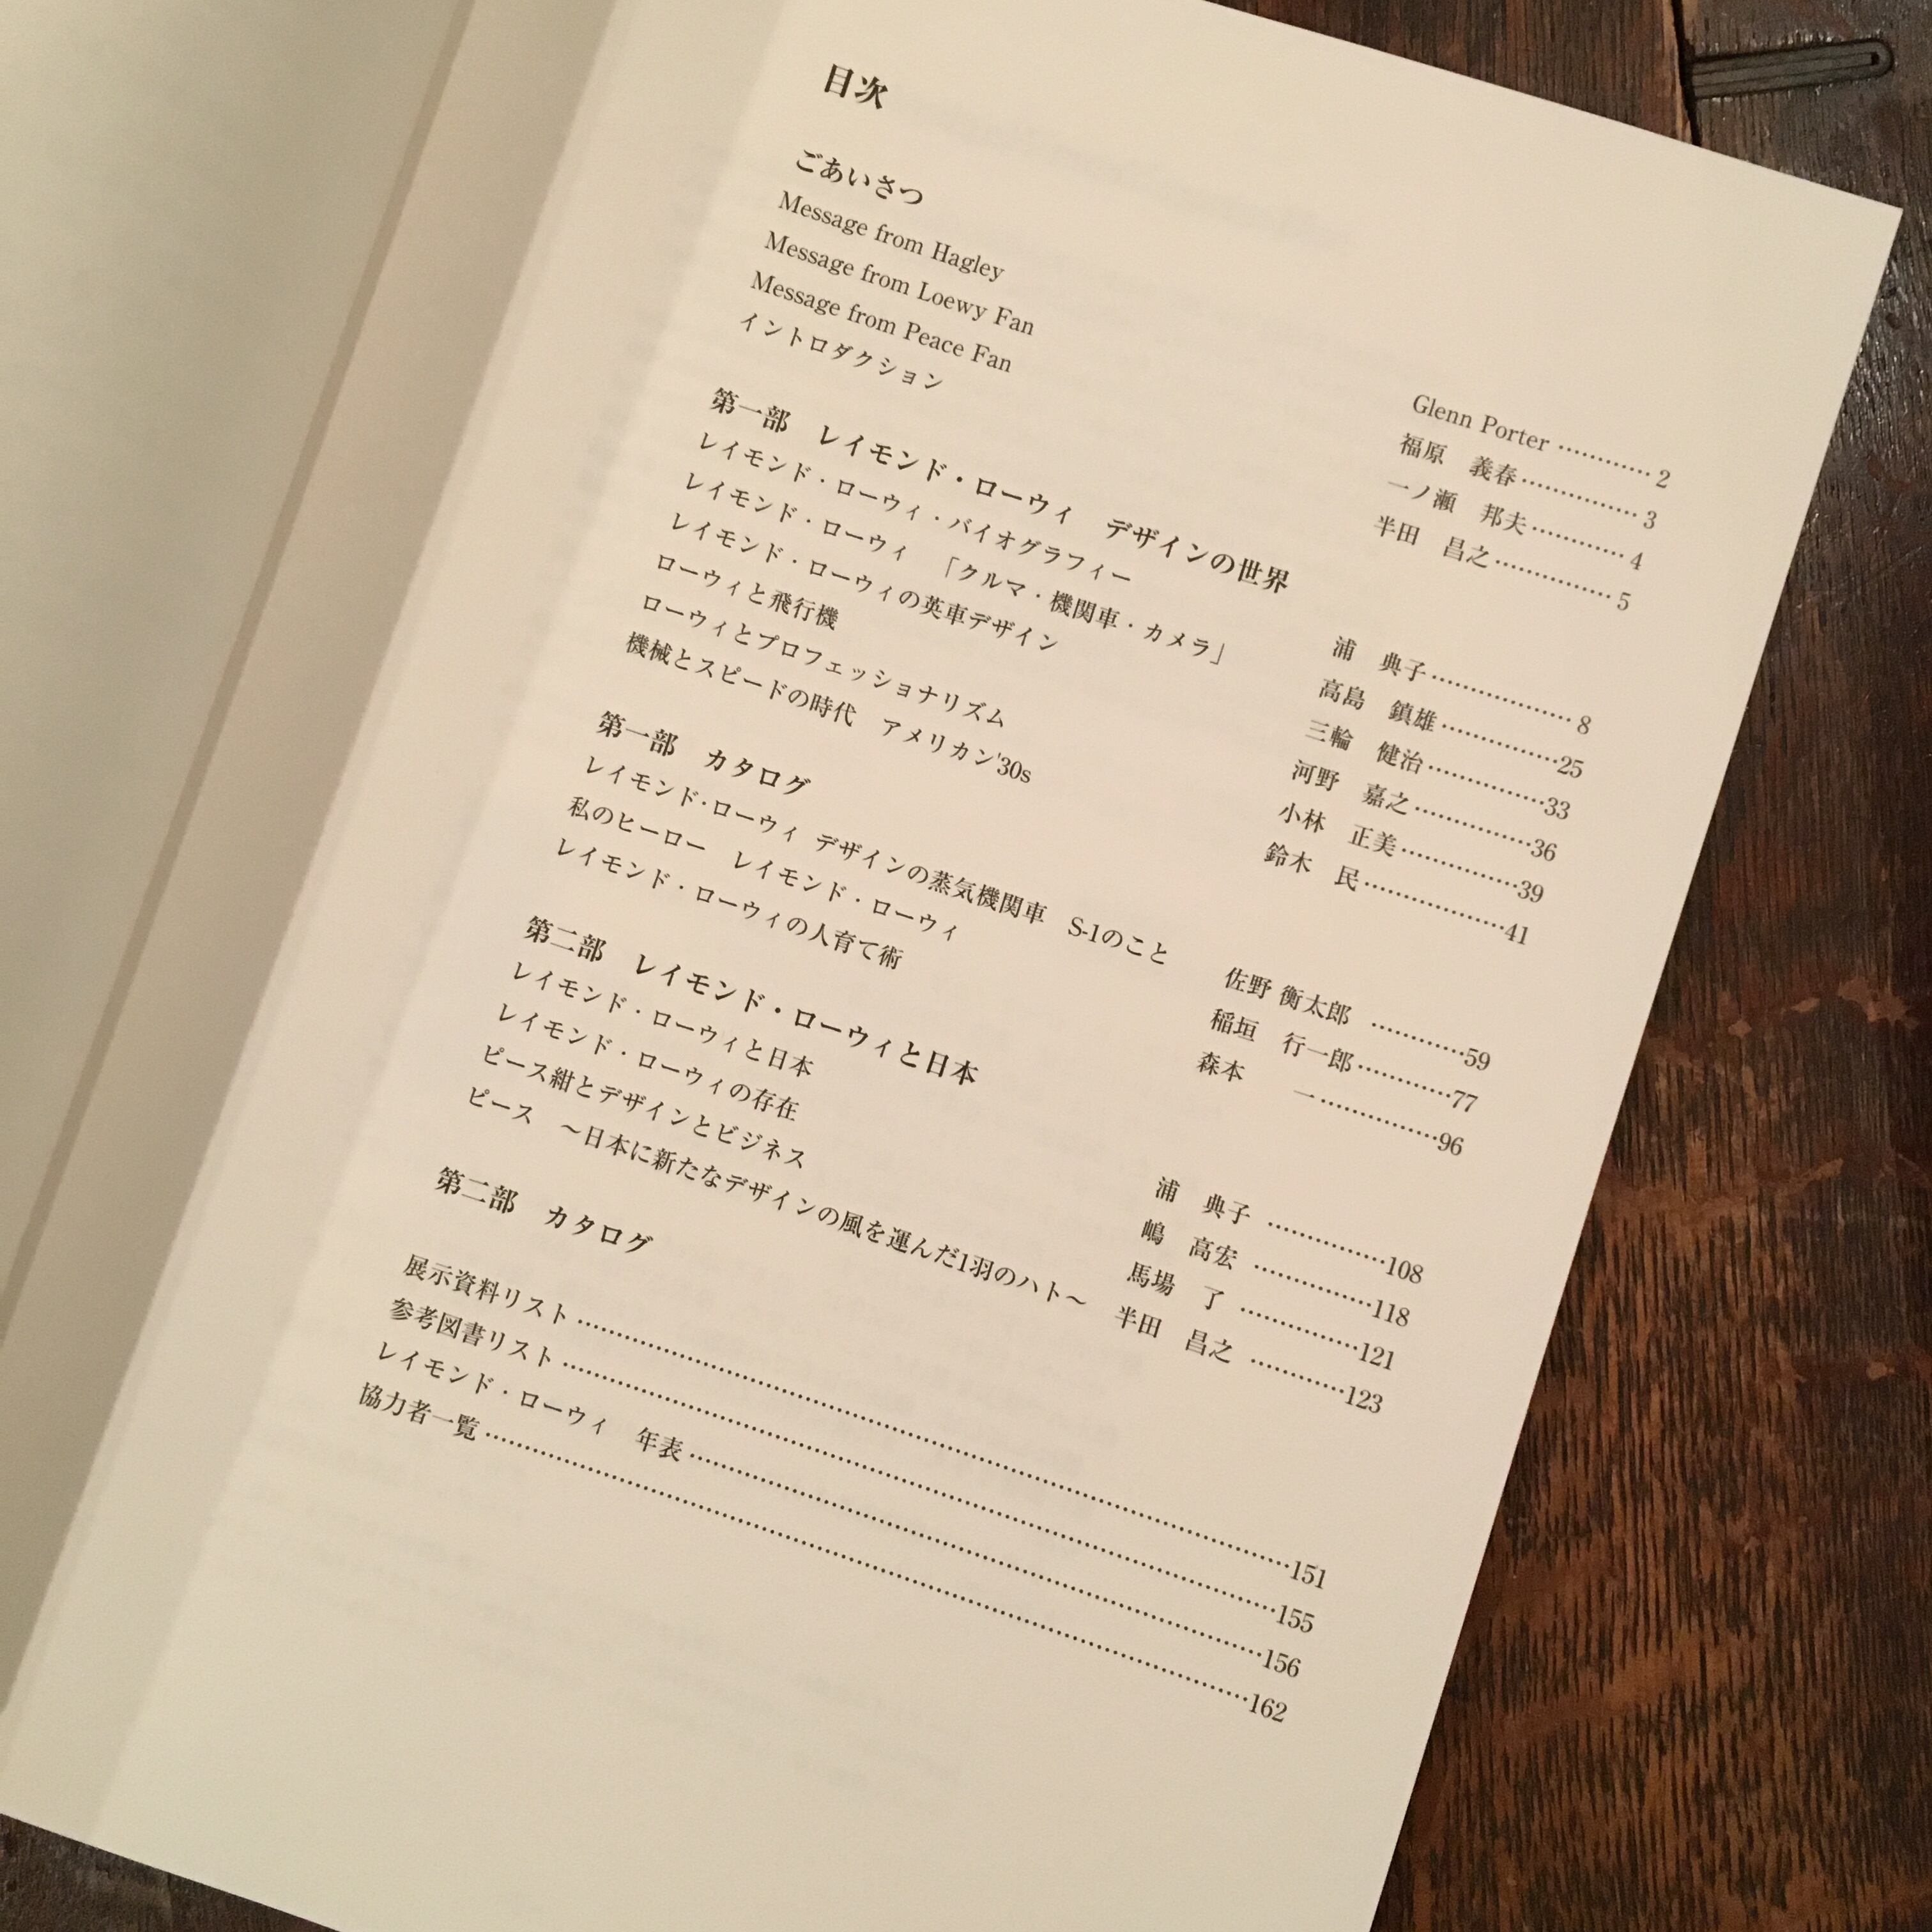 目次
ごあいさつ
Message from Hagley　Glenn Porter …………2
Message from Loewy Fan　福原　義春……………3
Message from Peace Fan　一ノ瀬　邦夫…………4
イントロダクション　半田　昌之……………5
第一部　レイモンド・ローウィ　デザインの世界
レイモンド・ローウィ・バイオグラフィー　浦　典子………………8
レイモンド・ローウィ　「クルマ・機関車・カメラ」　高島　鎮雄……………25
レイモンド・ローウィの英車デザイン　三輪　健治……………33
ローウィと飛行機　河野　嘉之……………36
ローウィとプロフェッショナリズム　小林　正美……………39
機械とスピードの時代　アメリカン'30s　鈴木　民………………41
第一部　カタログ
レイモンド・ローウィ デザインの蒸気機関車　S-1のこと　佐野 衡太郎 …………59
私のヒーロー　レイモンド・ローウィ　稲垣　行一郎…………77
レイモンド・ローウィの人育て術　森本　　一……………96
第二部　レイモンド・ローウィと日本
レイモンド・ローウィと日本　浦　典子 ……………108
レイモンド・ローウィの存在　嶋　高宏 ……………118
ピース紺とデザインとビジネス　馬場　了 ……………121
ピース　～日本に新たなデザインの風を運んだ1羽のハト～　半田　昌之 …………123
第二部　カタログ
展示資料リスト……………………………………………151
参考図書リスト……………………………………………155
レイモンド・ローウィ　年表……………………………………156
協力者一覧…………………………………………………162